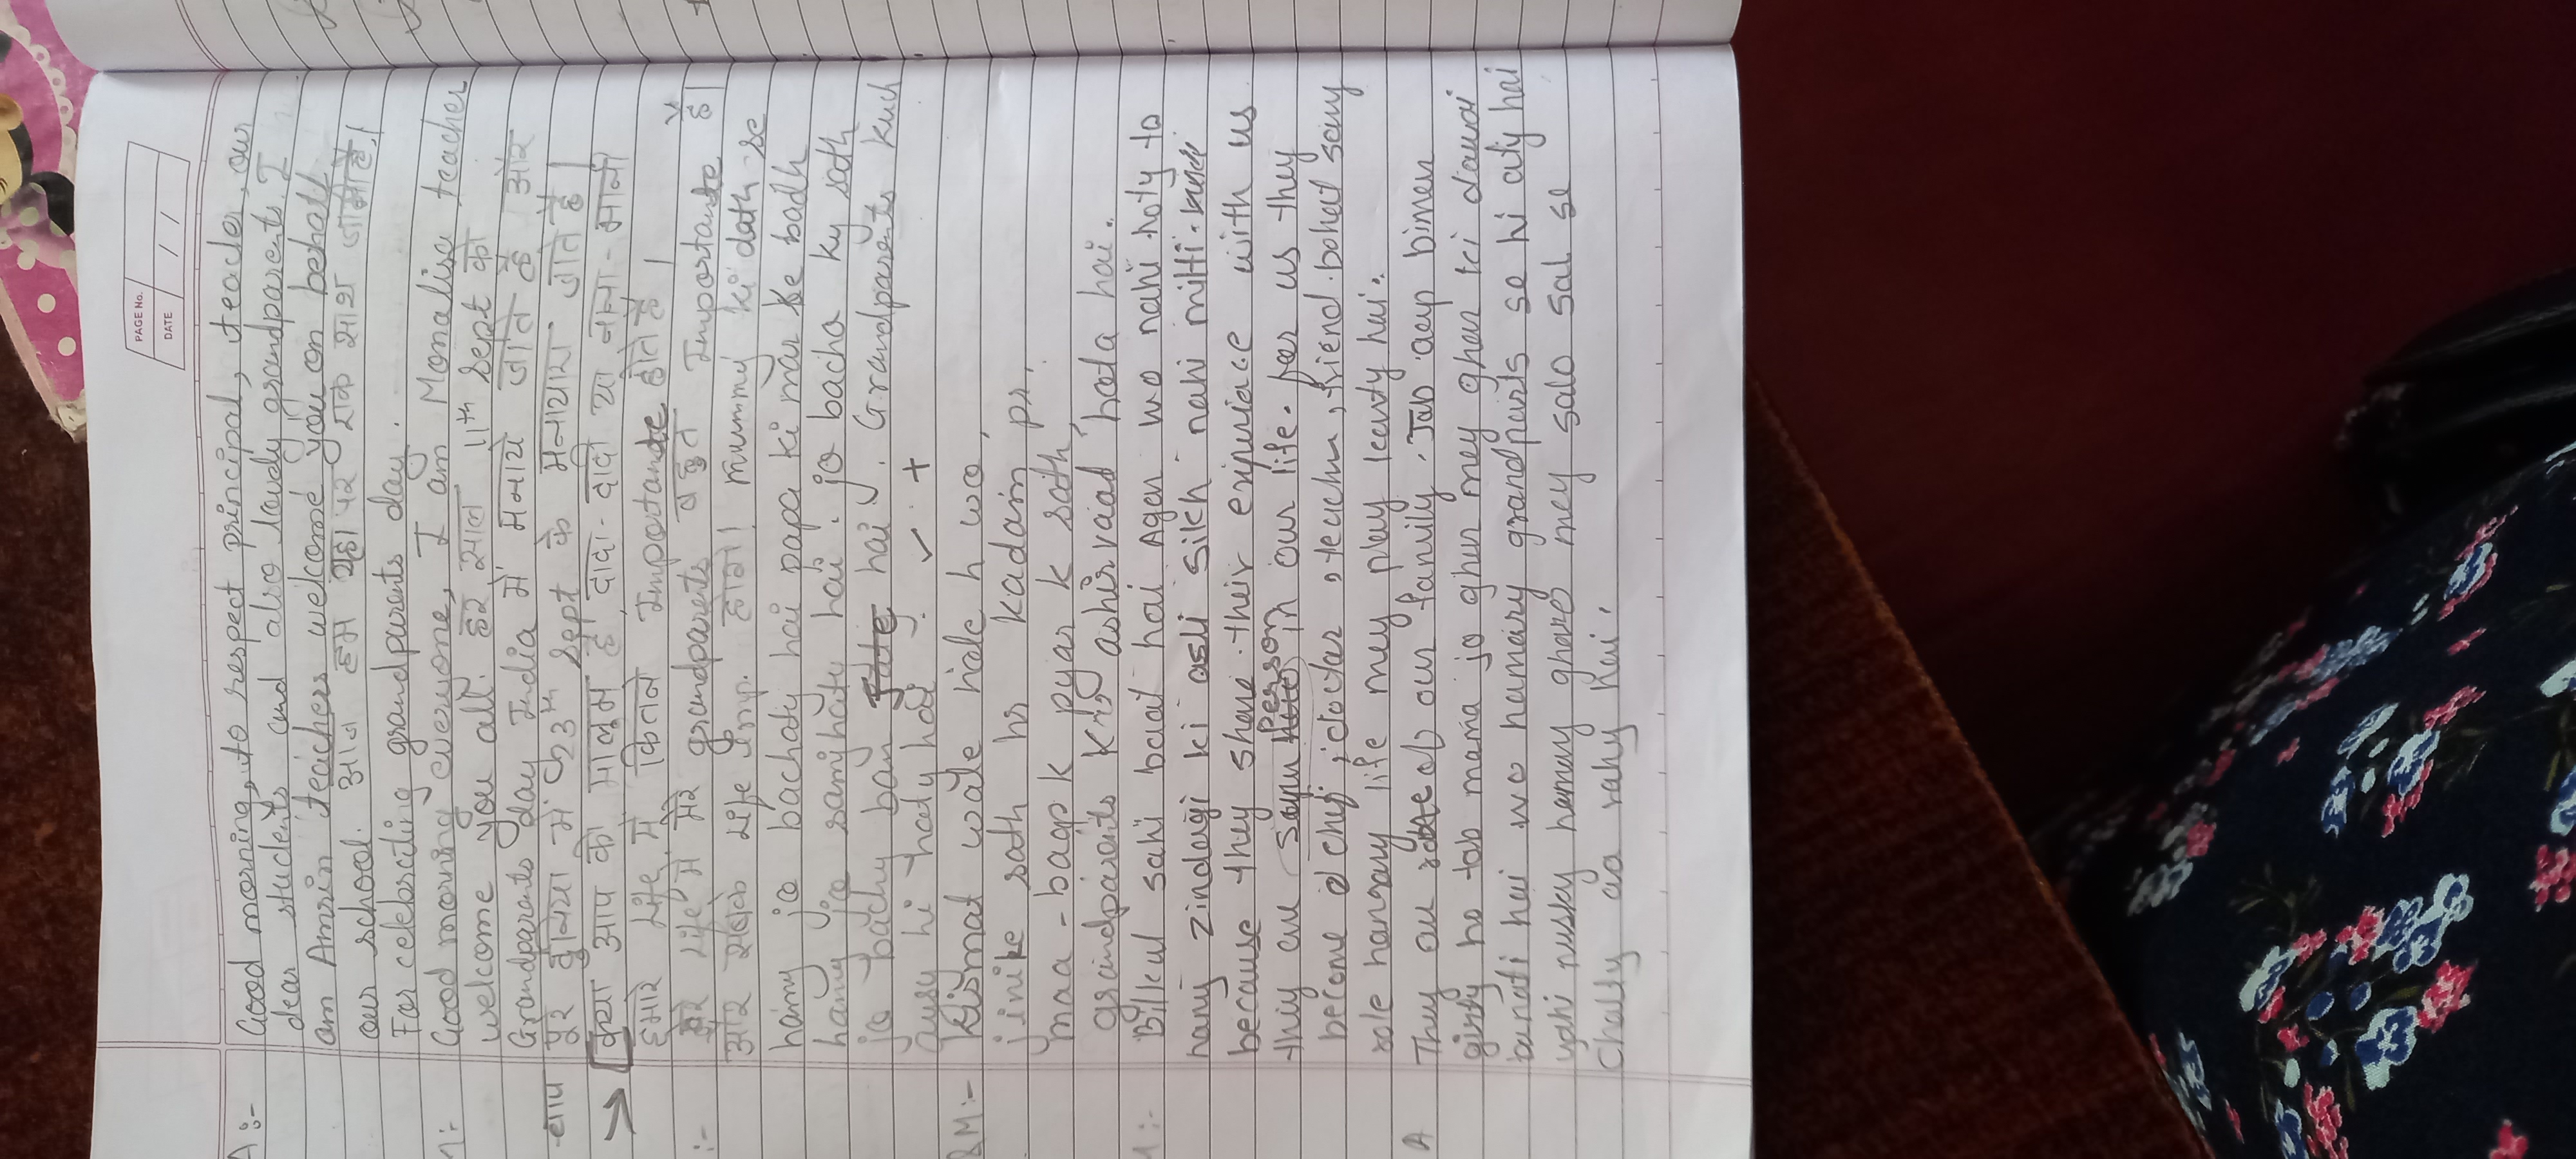 PAGE No.
DATE / /
A:- Good morning, to respect principal, teacher, our
dear students and also lovely grandparents. I
am Amrin teachers welcome you on behalf
our school. आज हम यहा पर एक साथ
For celebrating grandparents day.
M:- Good morning everyone, I am Monalisa teacher
welcome you all. हर साल 11th sept को
Grandparents day India में मनाये जाते है और
पूरे दुनिया में 23th sept के मनायाा जाते है।
क्या आप को मालूम है। दादा-दादी या नाना-नानी
हमारे life में कितने Importante होते है।
:- मेरे life में मेरे grandparents बहुत Importante है।
और सबके life imp. होगा। mummy ki dath se
hamy jo bachaty hai papa ki mar se badh
hamy jo samjhaty hai. jo bacho ky sath
jo bachy ban hai. Grandparents kuch
ausy hi hoty hai.
&M:- Kismat wale hale h wo,
jinke sath hr kadam pr,
maa-baap k pyar k sath,
grandparents k ashirvaad hota hai.
M:- Bilkul sahi baat hai Agar wo nahi hoty to
hamy zindagi ki asli sikh nahi milti.
because they share their expriece with us
they are person in our life. for us they
become a chef, doctar, teacher, friend. bohot sary
role hamary life mey play karty hai.
A They are of our family. Jab aap bimer
girty ho tab mama jo ghar mey ghar ki dawai
banati hai wo hamary grandparts se hi aty hai
yahi nusky hamary gharo mey salo sal se
Chaly aa rahy hai.